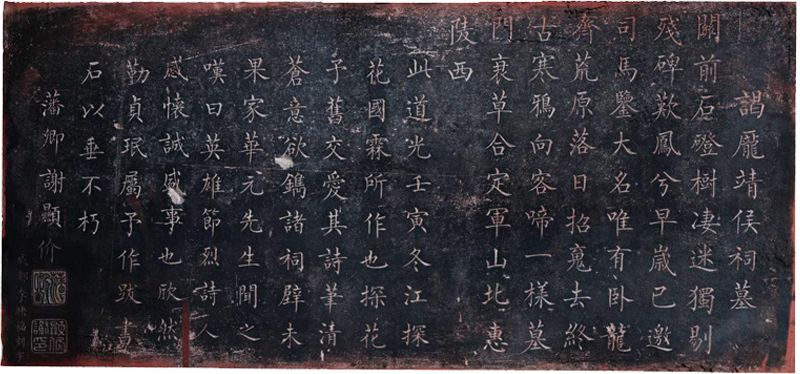 謁龐靖侯祠墓
關前石磴樹凄迷獨剔
殘碑歎鳳兮早歲已邀
司馬鑒大名唯有卧龍
齊荒原落日招䰟去終
古寒鴉向客啼一樣墓
門衰草合定軍山北惠
陵西
此道光壬寅冬江探
花國霖所作也探花
予舊交愛其詩筆清
蒼意欲鐫諸祠壁未
果家華元先生聞之
嘆曰英雄節烈詩人
感懷誠盛事也欣然
勒貞珉屬予作跋書
石以垂不朽
藩卿謝顯价